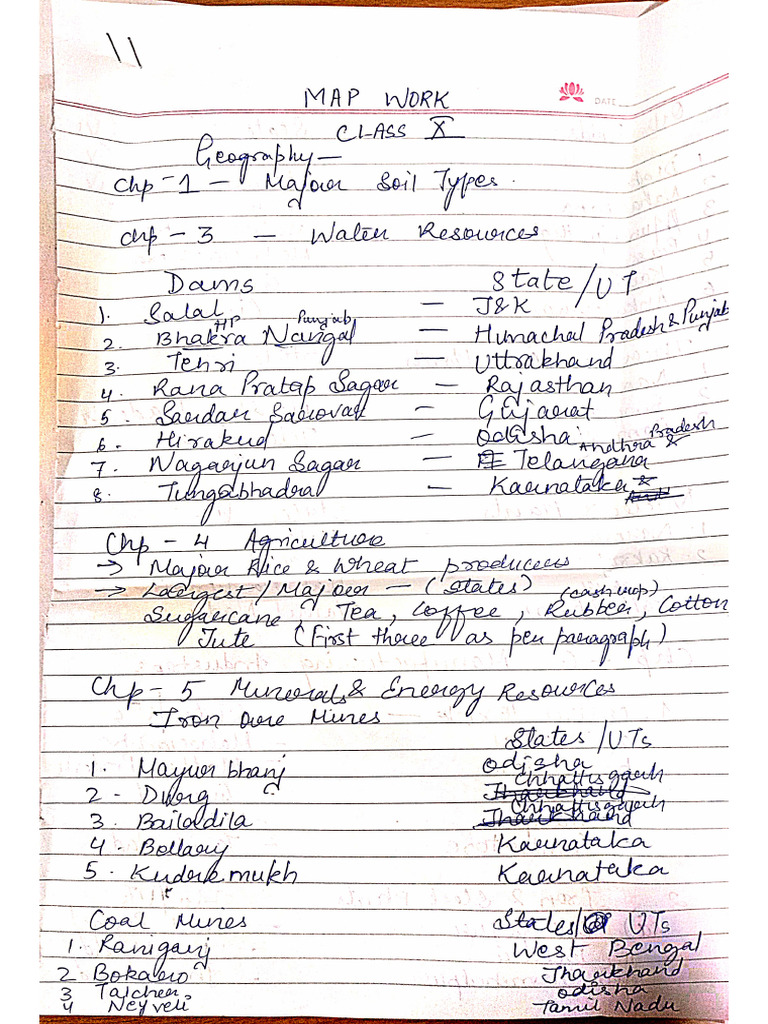 11
MAP WORK
DATE
CLASS X
Geography —
Chp - 1 — Majour Soil Types.
Chp - 3 — Water Resources
Dams State/UT
1. Salal — J&K
HP Punjab
2. Bhakra Nangal — Himachal Pradesh & Punjab
3. Tehri — Uttrakhand
4. Rana Pratap Sagar — Rajasthan
5. Sardar Sarovar — Gujarat
6. Hirakud — Odisha
Andhra Pradesh &
7. Nagarjun Sagar — Telangana
8. Tungabhadra — Karnataka &
Chp - 4 Agriculture
→ Majour Rice & Wheat producers
→ Largest/Majour — (States) (cash crop)
Sugarcane, Tea, Coffee, Rubber, Cotton
Jute (First three as per paragraph)
Chp - 5 Minerals & Energy Resources
Iron Ore Mines
States/UTs
1. Mayurbhanj Odisha
Chhattisgarh
2. Durg Jharkhand
Chhattisgarh
3. Bailadila Jharkhand
4. Bellary Karnataka
5. Kudremukh Karnataka
Coal Mines States/ UTs
1. Raniganj West Bengal
2. Bokaro Jharkhand
3 Talcher Odisha
4 Neyveli Tamil Nadu